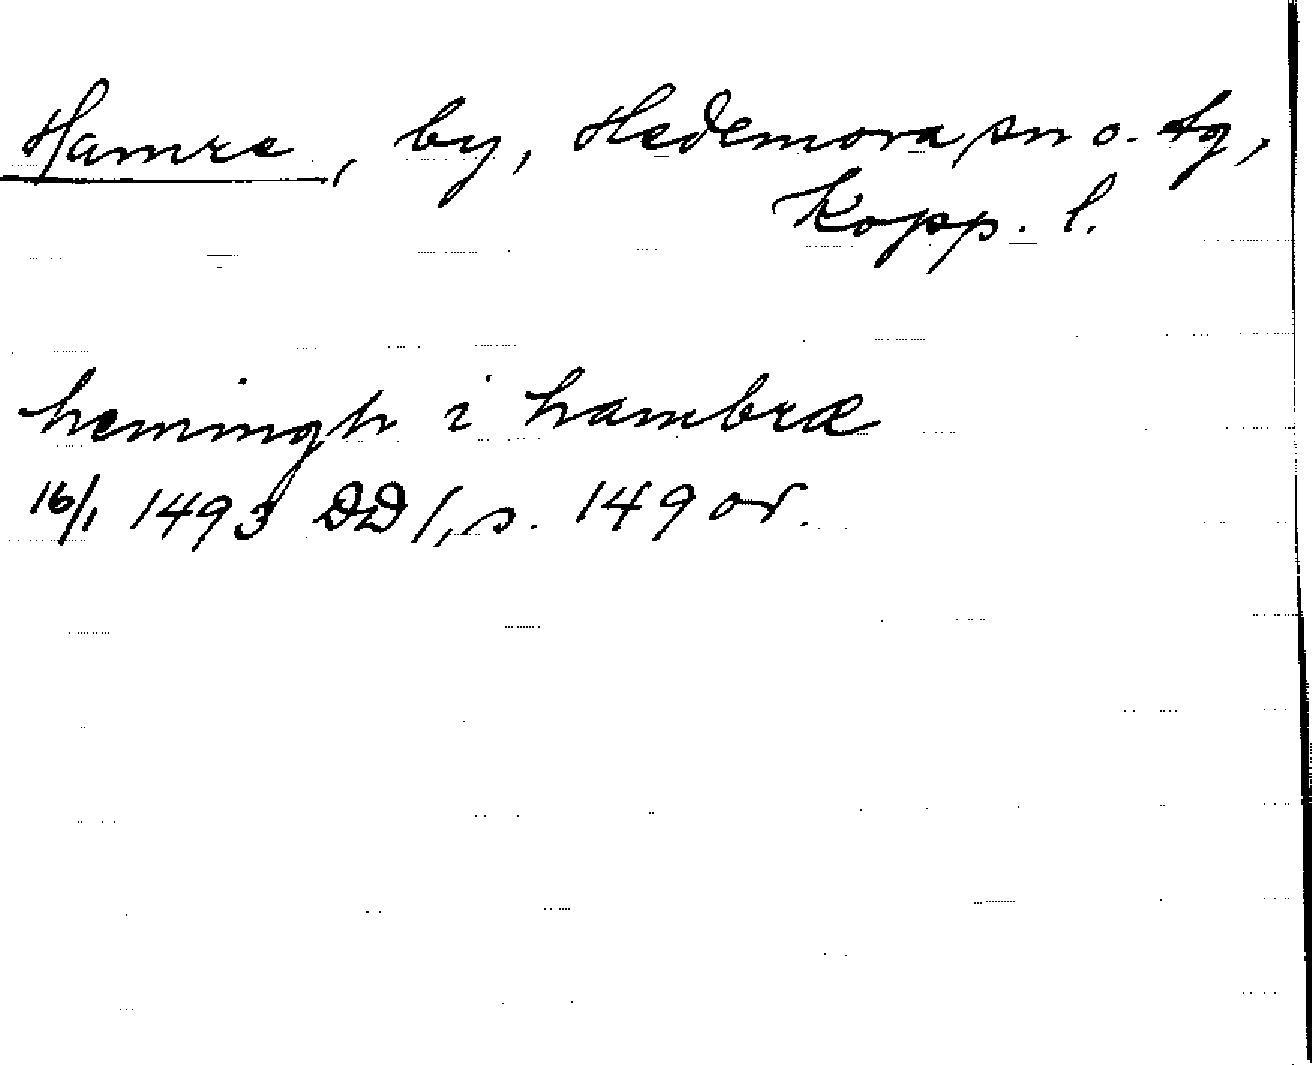 Hamre, by, Hedemora sn o. tg,
Kopp. l.
hemingh i hambræ
16/1 1493 DD 1, s. 149 or.